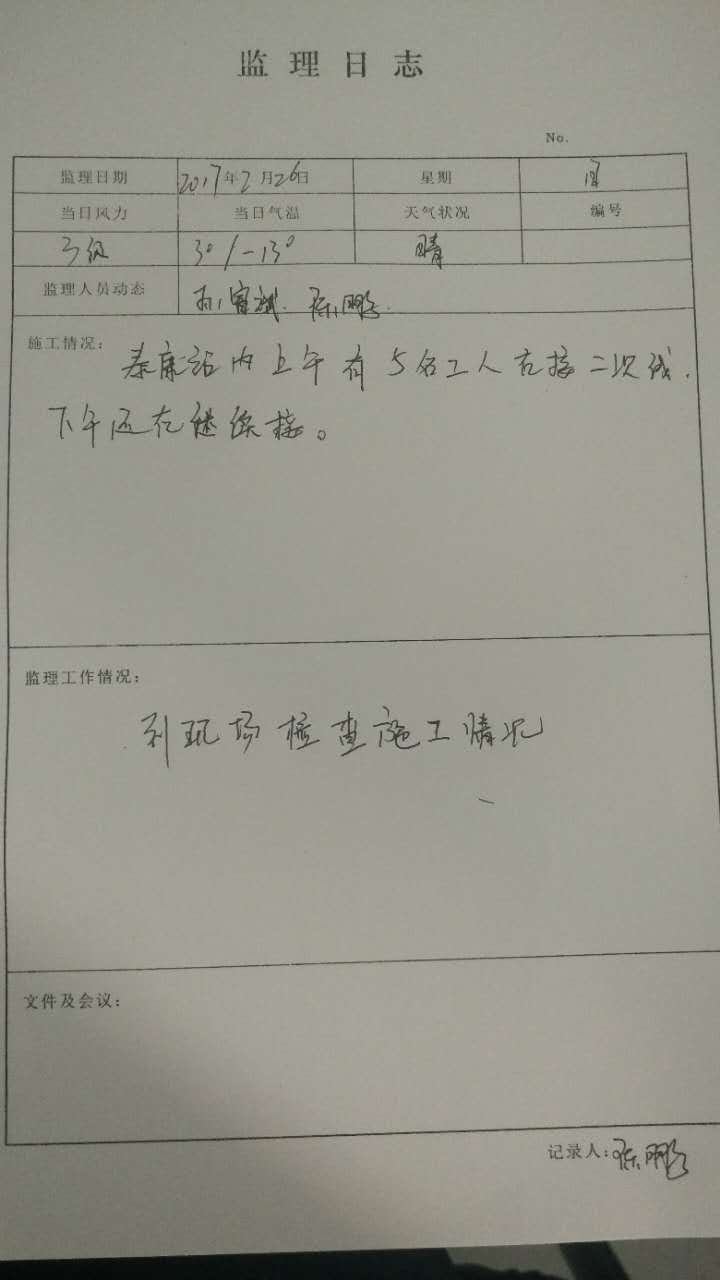 监理日志
No.
监理日期 2017年2月26日 星期 日
当日风力 当日气温 天气状况 编号
3级 3°/-13° 晴
监理人员动态 陈鹏
施工情况: 泰康站内上午有5名工人在接二次线.
下午还在继续接。
监理工作情况:
到现场检查施工情况
文件及会议:
记录人:陈鹏